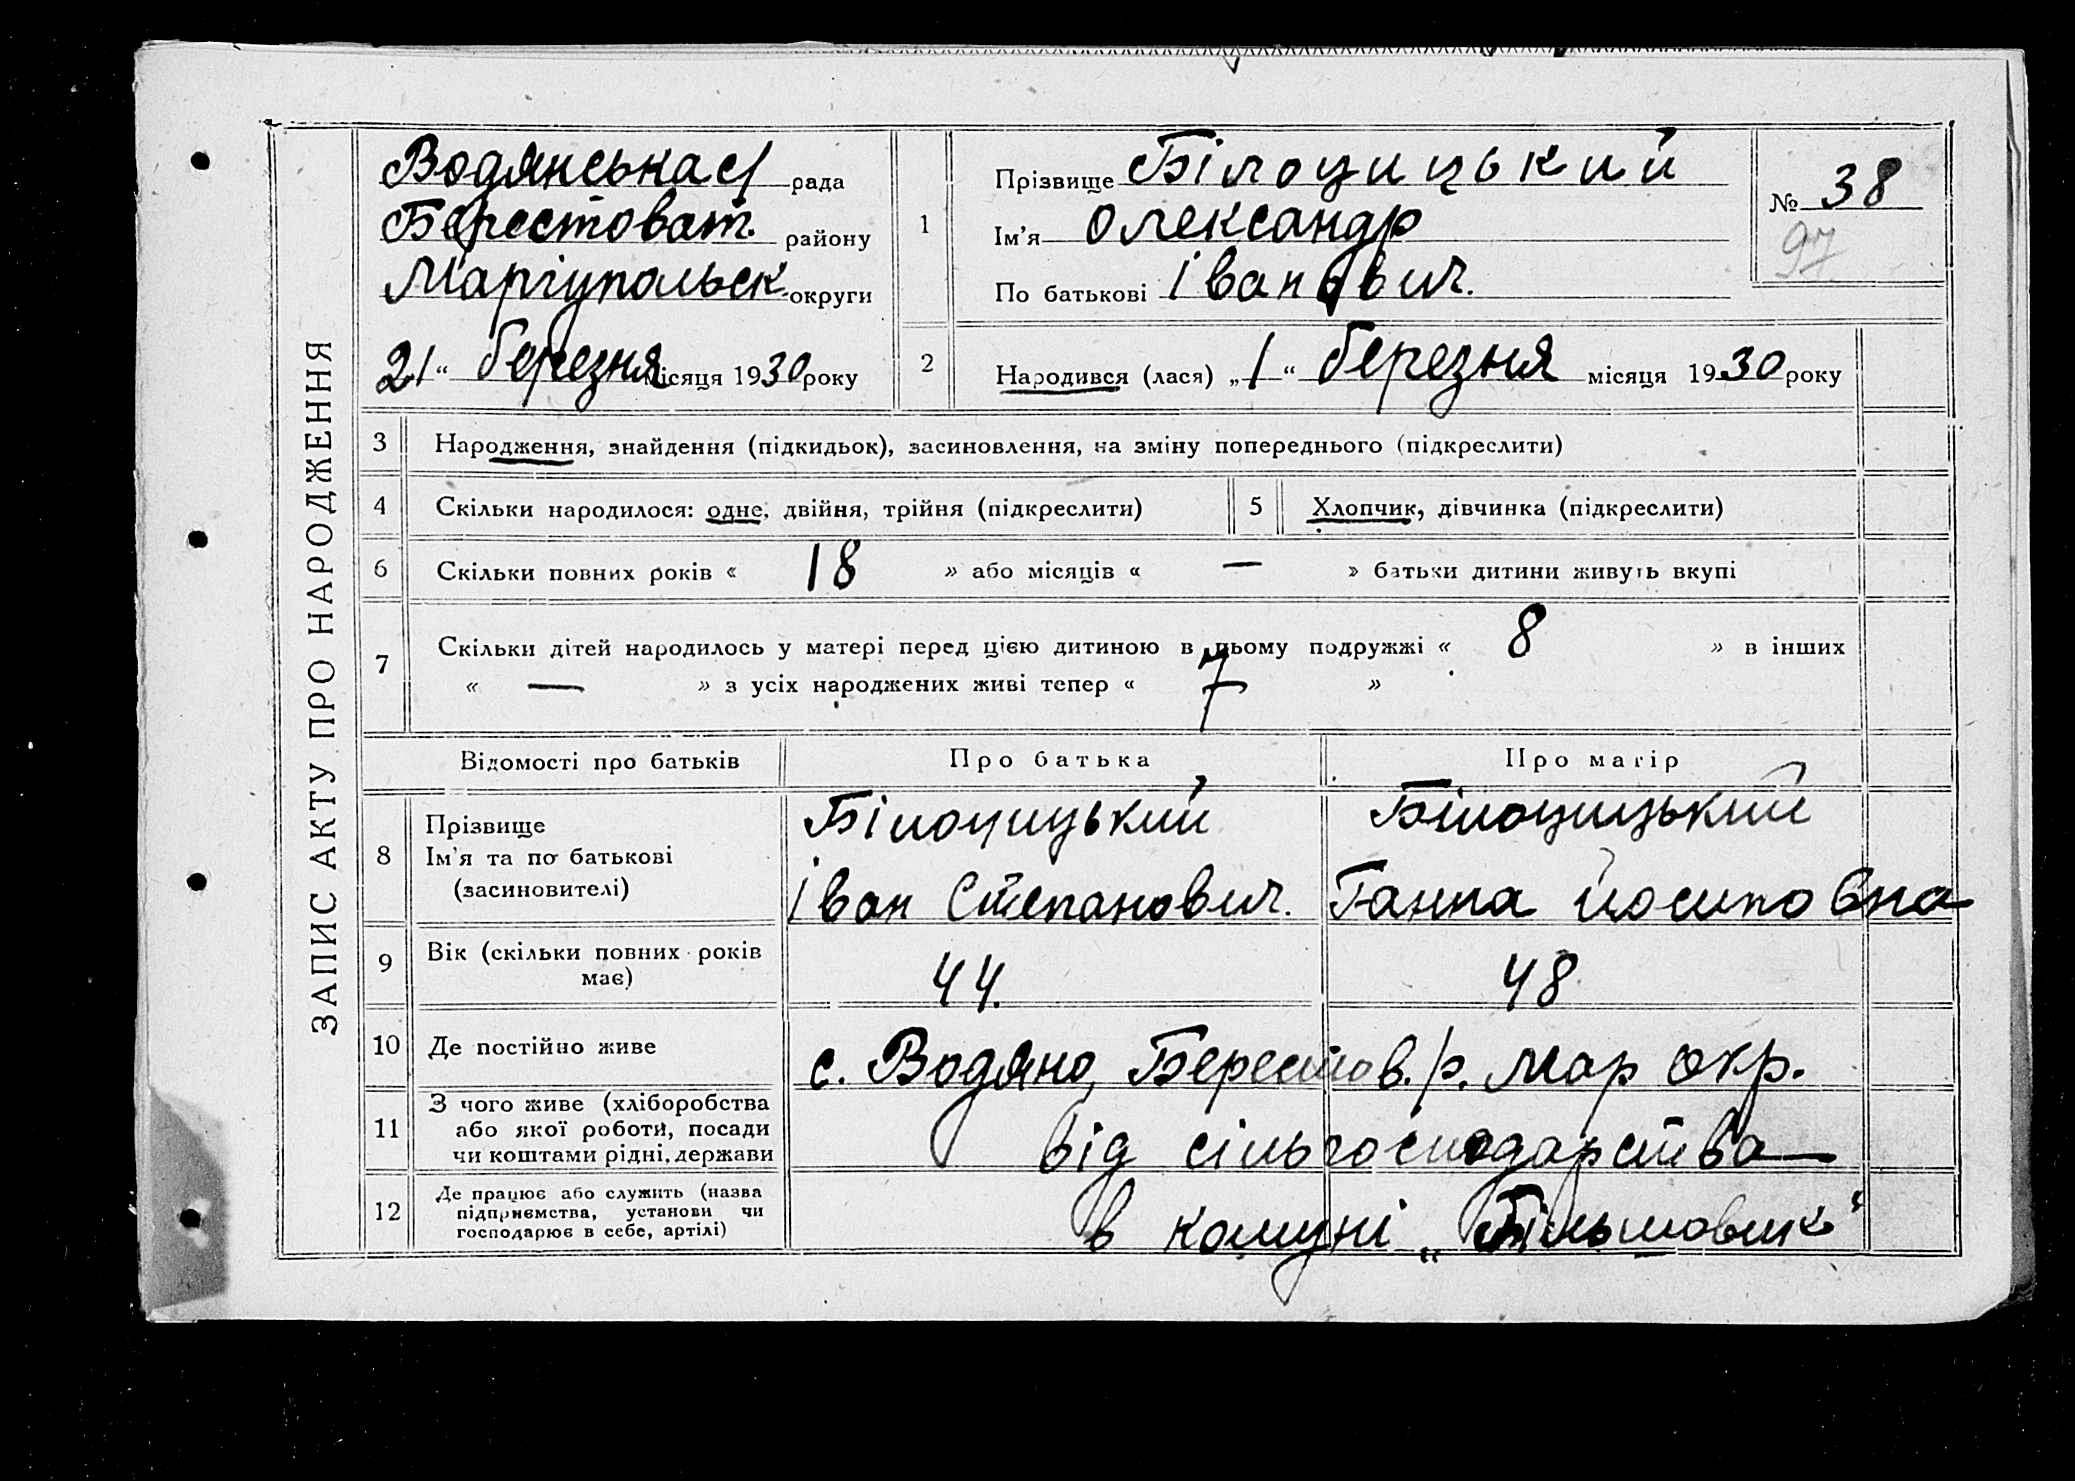 ЗАПИС АКТУ ПРО НАРОДЖЕННЯ
Водянська с/ рада
Берестоват. району
Маріупольск округи
21 “ березня місяця 1930 року
1
Прізвище Білоцицький
Ім’я Олександр
По батькові Іванович.
№ 38
97
2
Народився (лася) „1“ березня місяця 1930 року
3 Народження, знайдення (підкидьок), засиновлення, на зміну попереднього (підкреслити)
4 Скільки народилося: одне, двійня, трійня (підкреслити)
5 Хлопчик, дівчинка (підкреслити)
6 Скільки повних років « 18 » або місяців « — » батьки дитини живуть вкупі
7 Скільки дітей народилось у матері перед цією дитиною в цьому подружжі « 8 » в інших
« — » з усіх народжених живі тепер « 7 »
Відомості про батьків Про батька Про матір
8 Прізвище
Ім’я та по батькові
(засиновителі)
Білоцицький
Іван Степанович.
Білоцицький
Ганна Йосиповна
9 Вік (скільки повних років
має)
44.
48
10 Де постійно живе
с. Водяно, Берестов. р. Мар окр.
11 З чого живе (хліборобства
або якої роботи, посади
чи коштами рідні, держави
від сільгосподарства
12 Де працює або служить (назва
підприємства, установи чи
господарює в себе, артілі)
в комуні „Більшовик“